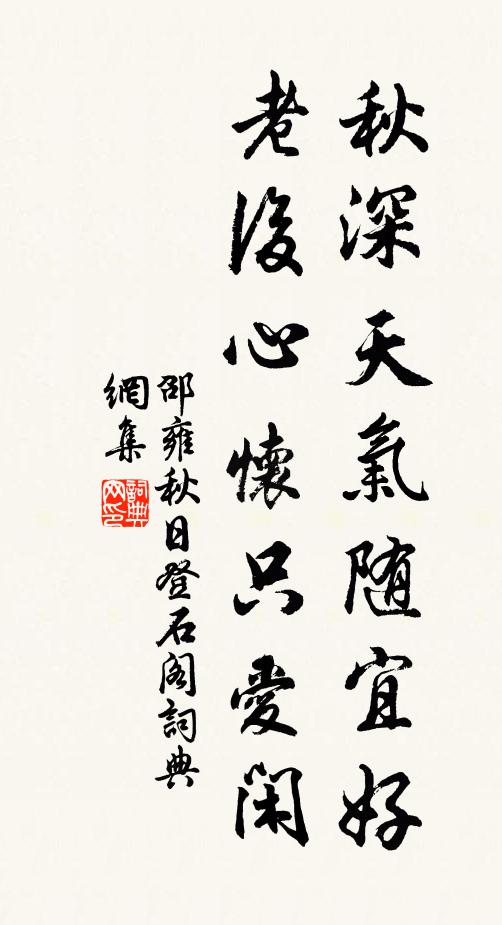 秋深天氣随宜好
老後心懷只愛閑
邵雍秋日登石阁詞典
網集
詞典
网印